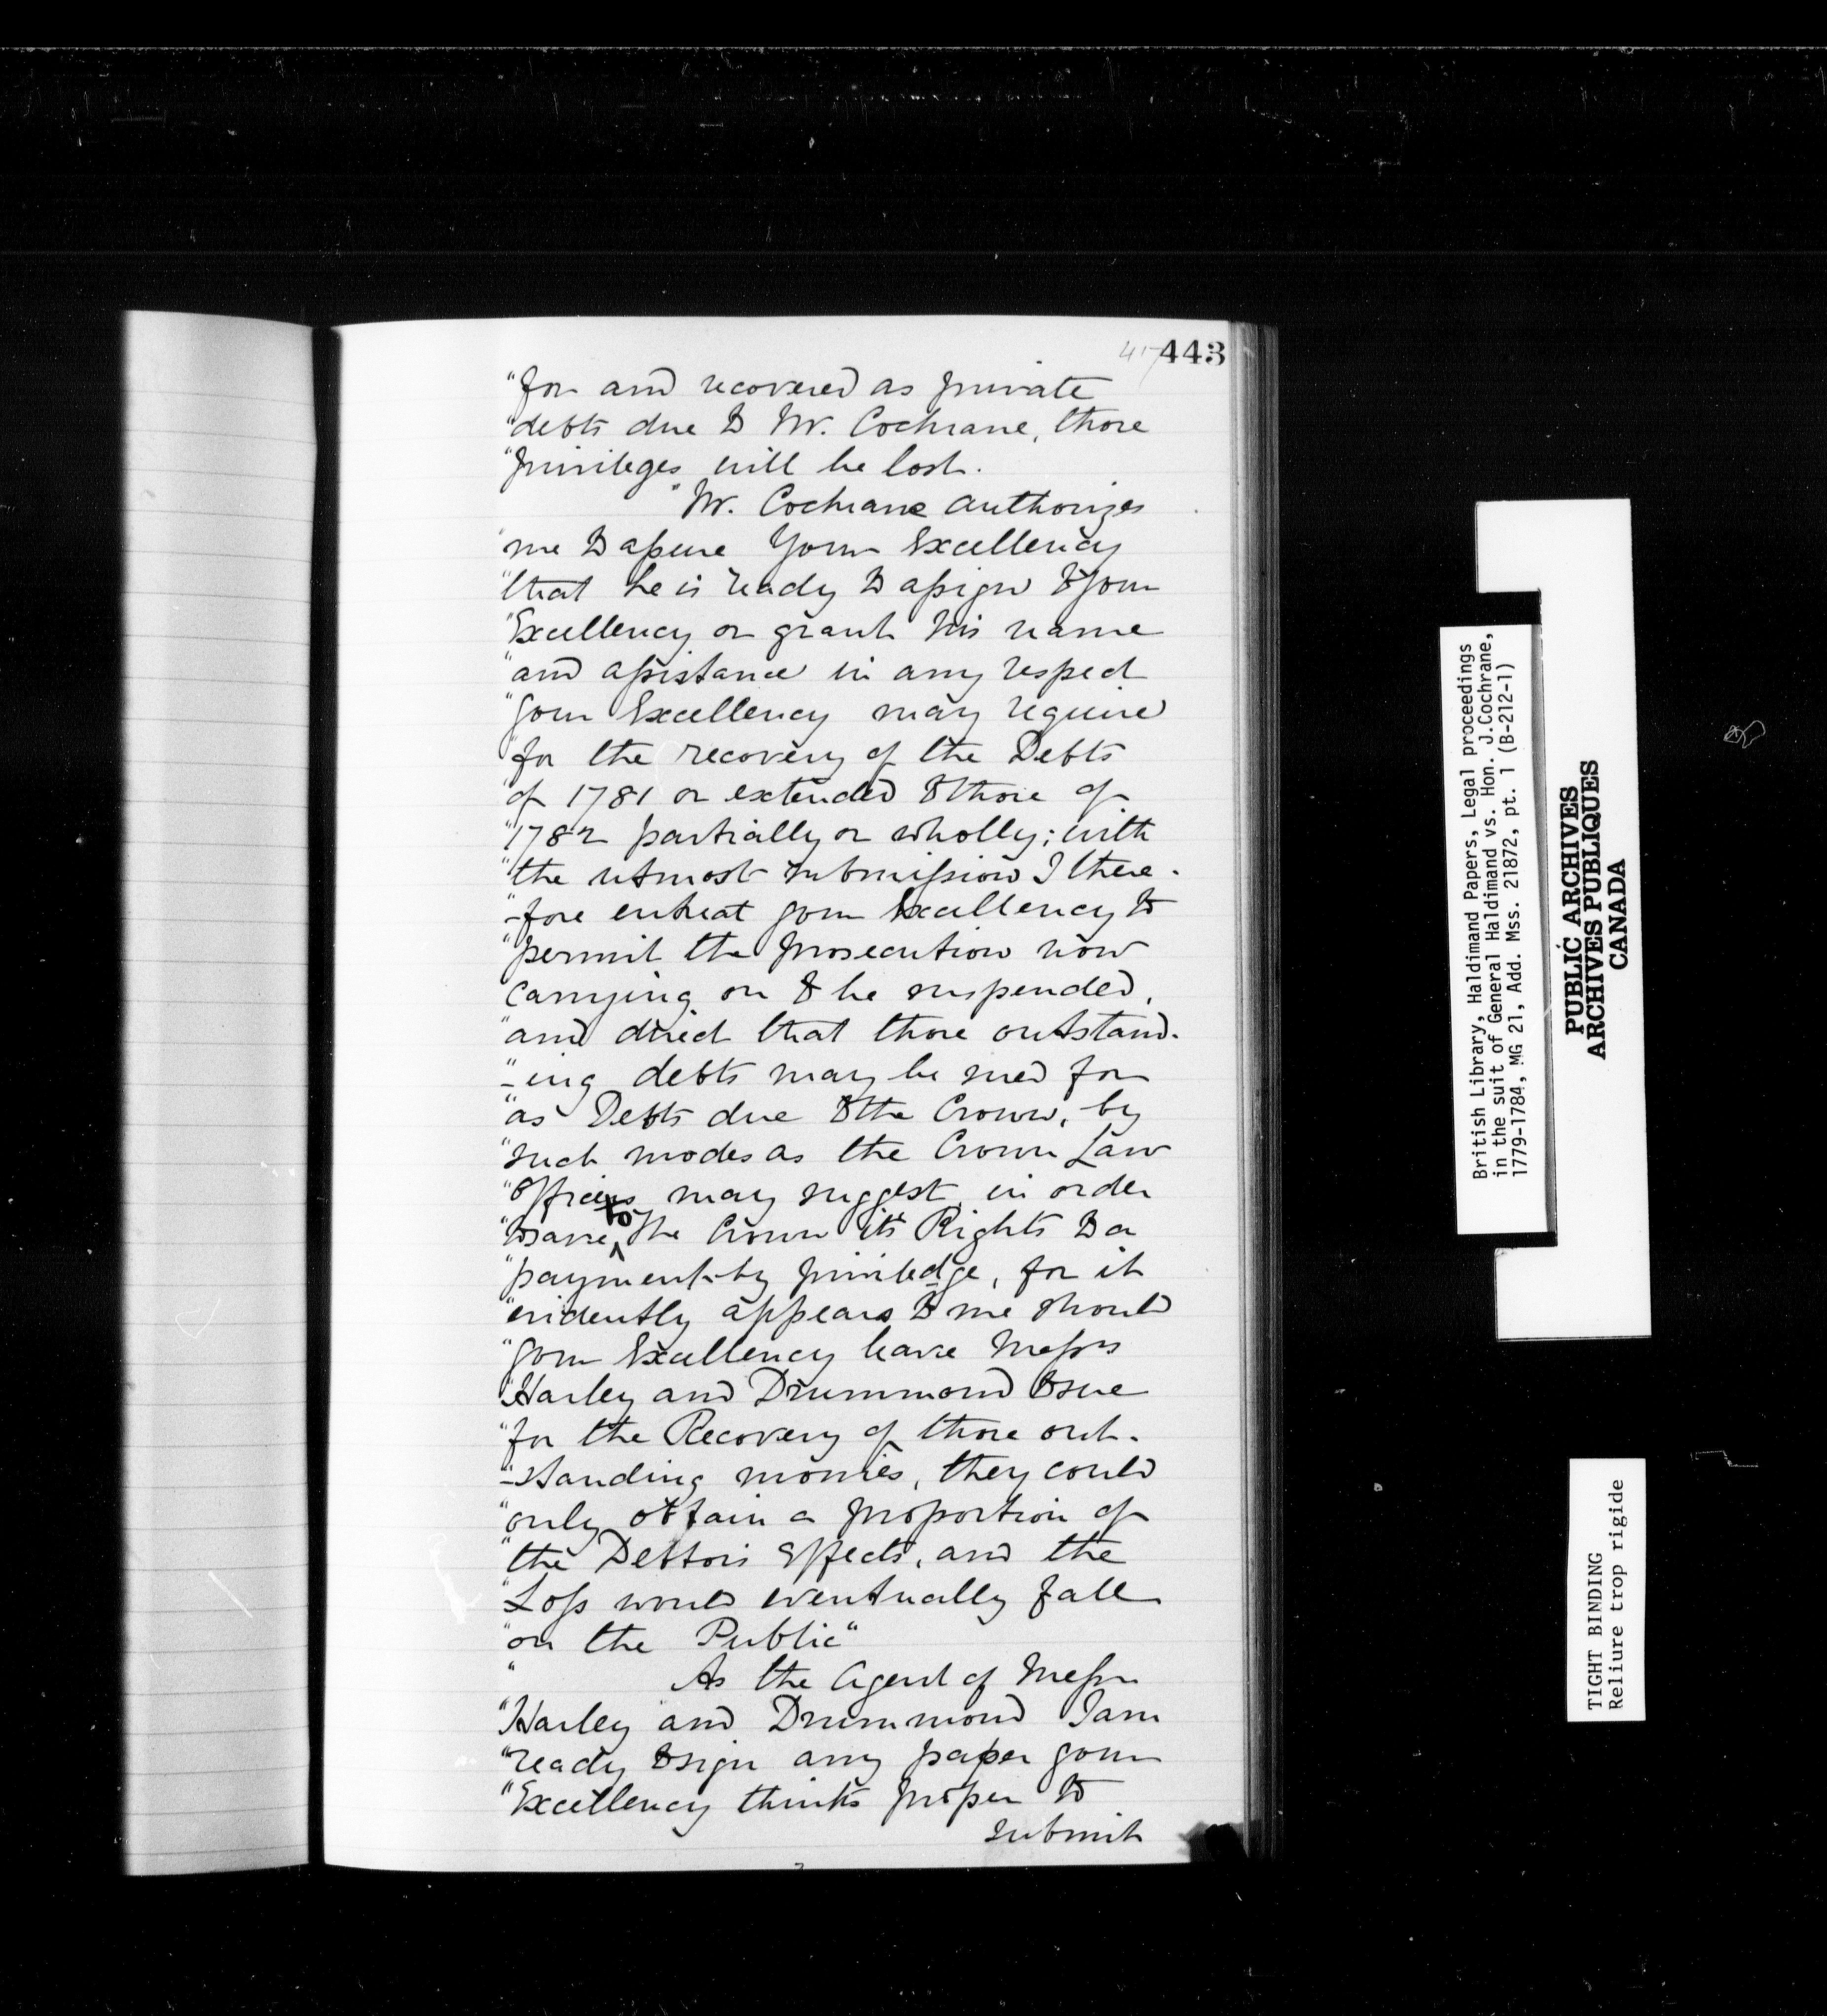 417 443
"for and recovered as private
"debts due to Mr. Cochrane, those
"privileges will be lost.
"Mr. Cochrane authorizes
"me to assure Your Excellency
"that he is ready to assign to your
"Excellency or grant his name
"and assistance in any respect
"your Excellency may require
"for the recovery of the Debts
"of 1781 or extended to those of
"1782 partially or wholly; with
"the utmost submission I there-
"-fore entreat your Excellency to
"permit the prosecution now
"carrying on to be suspended,
"and direct that those outstand-
"-ing debts may be sued for
"as Debts due to the Crown, by
"such modes as the Crown Law
"Officers may suggest, in order
"to save to the Crown its Rights to a
"payment by priviledge, for it
"evidently appears to me should
"your Excellency leave Messrs
"Harley and Drummond to sue
"for the Recovery of those out-
"-standing monies, they could
"only obtain a proportion of
"the Debtors Effects, and the
"Loss would eventually fall
"on the Public"
" As the Agent of Messrs
"Harley and Drummond I am
"ready to sign any paper your
"Excellency thinks proper to
submit
British Library, Haldimand Papers, Legal proceedings
in the suit of General Haldimand vs. Hon. J.Cochrane,
1779-1784, MG 21, Add. Mss. 21872, pt. 1 (B-212-1)
PUBLIC ARCHIVES
ARCHIVES PUBLIQUES
CANADA
TIGHT BINDING
Reliure trop rigide